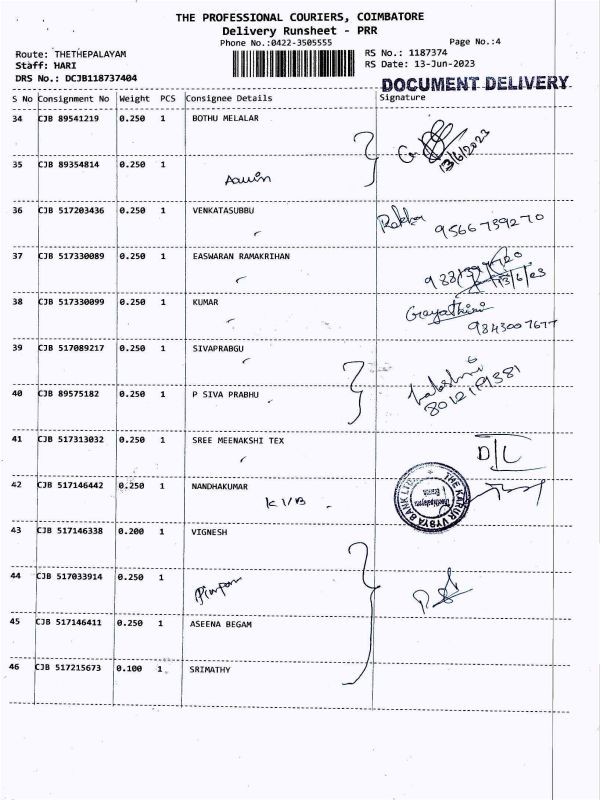 THE PROFESSIONAL COURIERS, COIMBATORE
Delivery Runsheet - PRR
Phone No.:0422-3505555 Page No.:4
Route: THETHEPALAYAM RS No.: 1187374
Staff: HARI RS Date: 13-Jun-2023
DRS No.: DCJB118737404
DOCUMENT DELIVERY
S No Consignment No Weight PCS Consignee Details Signature
34 CJB 89541219 0.250 1 BOTHU MELALAR
13/6/2023
35 CJB 89354814 0.250 1
36 CJB 517203436 0.250 1 VENKATASUBBU
9566739270
37 CJB 517330089 0.250 1 EASWARAN RAMAKRIHAN
13/6/23
38 CJB 517330099 0.250 1 KUMAR Gayathiri
9843007677
39 CJB 517089217 0.250 1 SIVAPRABGU
Lakshmi
40 CJB 89575182 0.250 1 P SIVA PRABHU
41 CJB 517313032 0.250 1 SREE MEENAKSHI TEX D/L
42 CJB 517146442 0.250 1 NANDHAKUMAR
KVB
THE KARUR VYSYA BANK LTD.
Thethipalayam
Branch
43 CJB 517146338 0.200 1 VIGNESH
44 CJB 517033914 0.250 1
45 CJB 517146411 0.250 1 ASEENA BEGAM
46 CJB 517215673 0.100 1 SRIMATHY